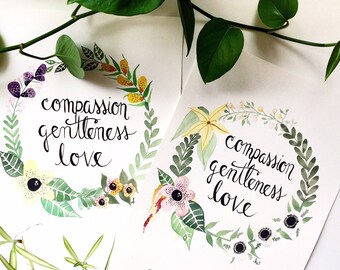 compassion
gentleness
love
compassion
gentleness
love